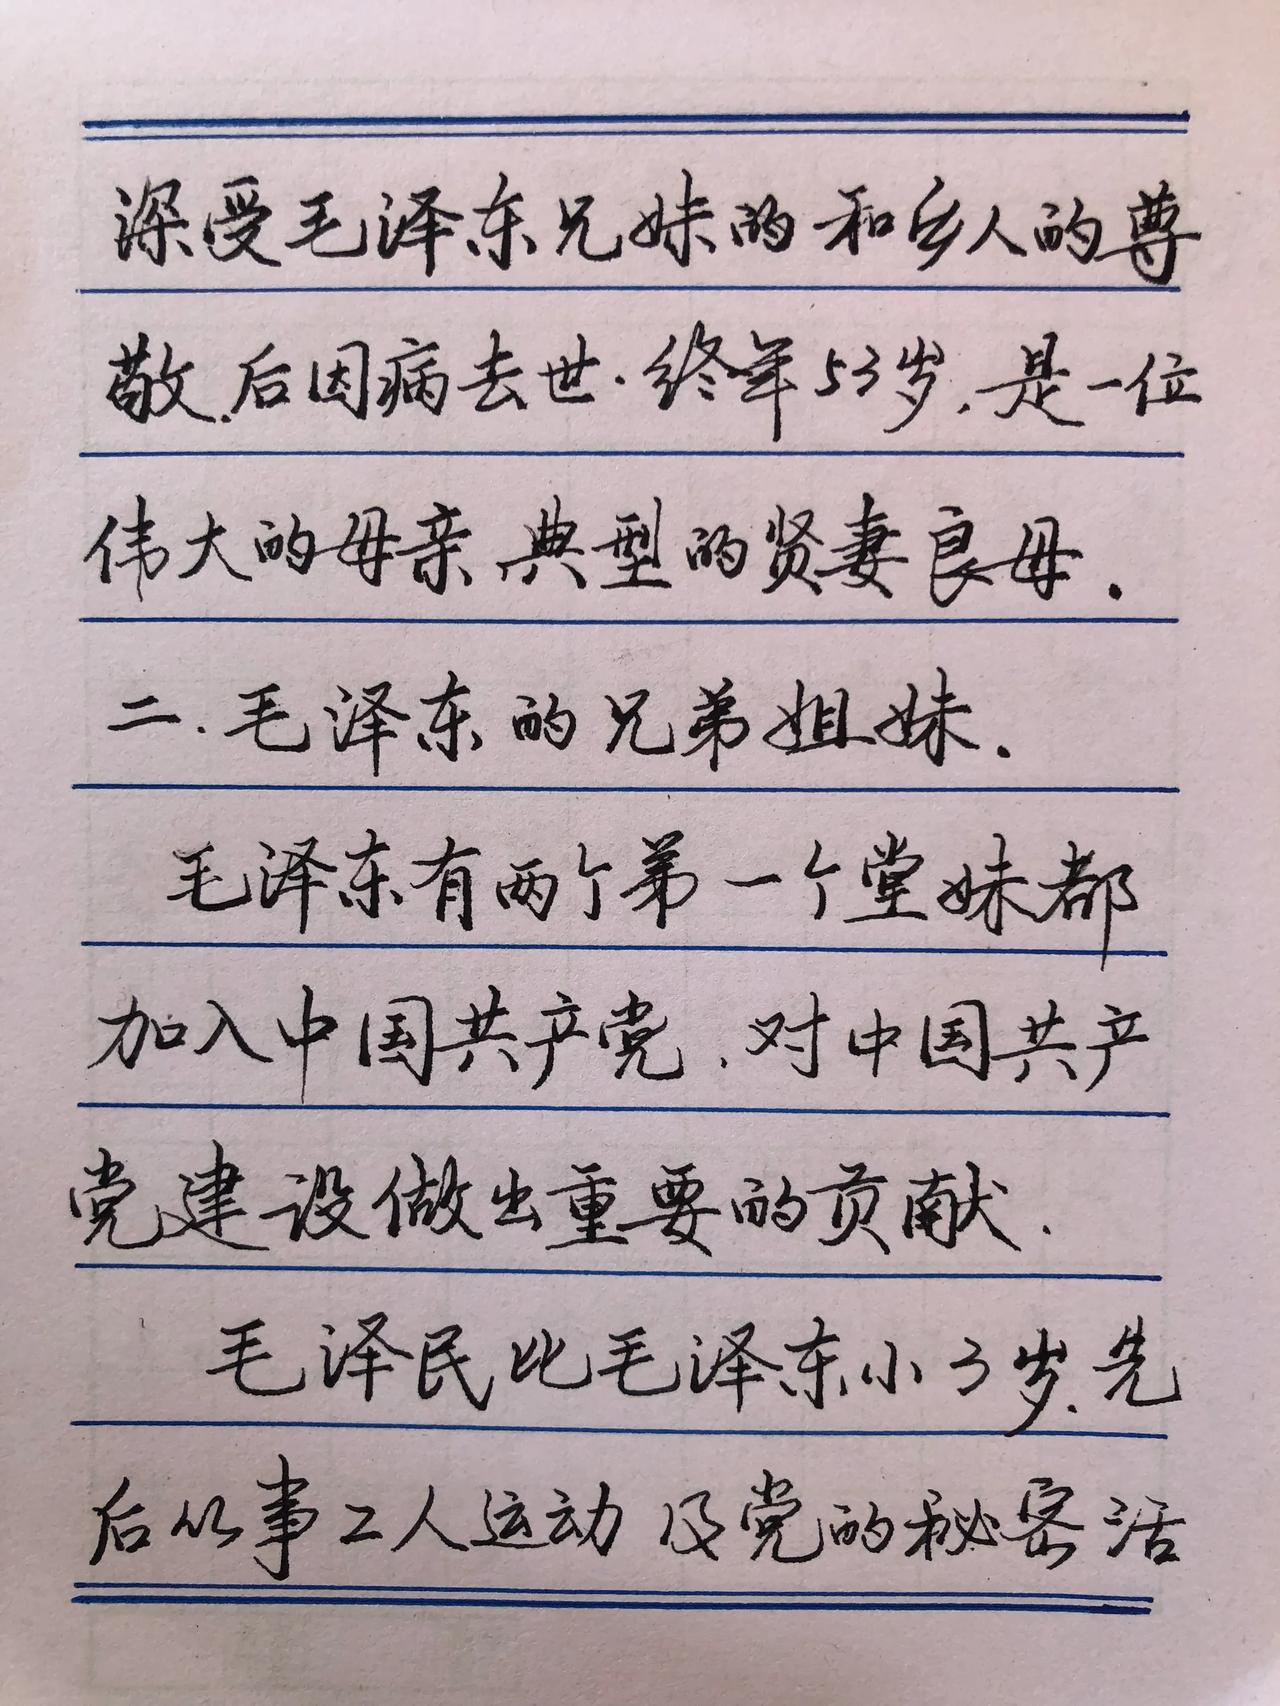 深受毛泽东兄妹的和乡人的尊
敬.后因病去世.终年53岁.是一位
伟大的母亲、典型的贤妻良母.
二.毛泽东的兄弟姐妹.
毛泽东有两个弟一个堂妹都
加入中国共产党.对中国共产
党建设做出重要的贡献.
毛泽民比毛泽东小3岁、先
后从事工人运动及党的秘密活